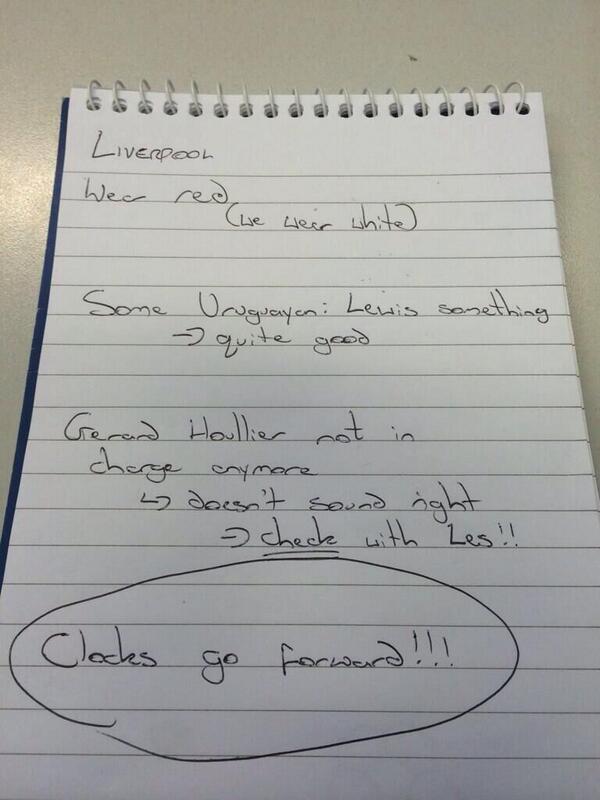 LIVERPOOL
Wear red
(we wear white)
Some Uruguayan: Lewis something
→ quite good
Gerard Houllier not in
charge anymore
↳ doesn't sound right
→ check with Les!!
Clocks go forward!!!